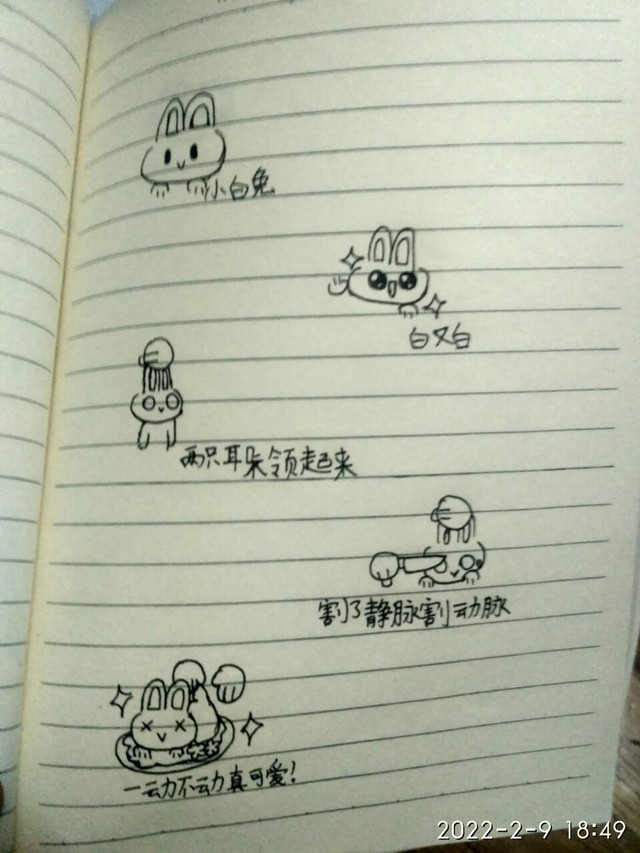 小白兔
白又白
两只耳朵领起来
割了静脉割动脉
一动不动真可爱!
2022-2-9 18:49